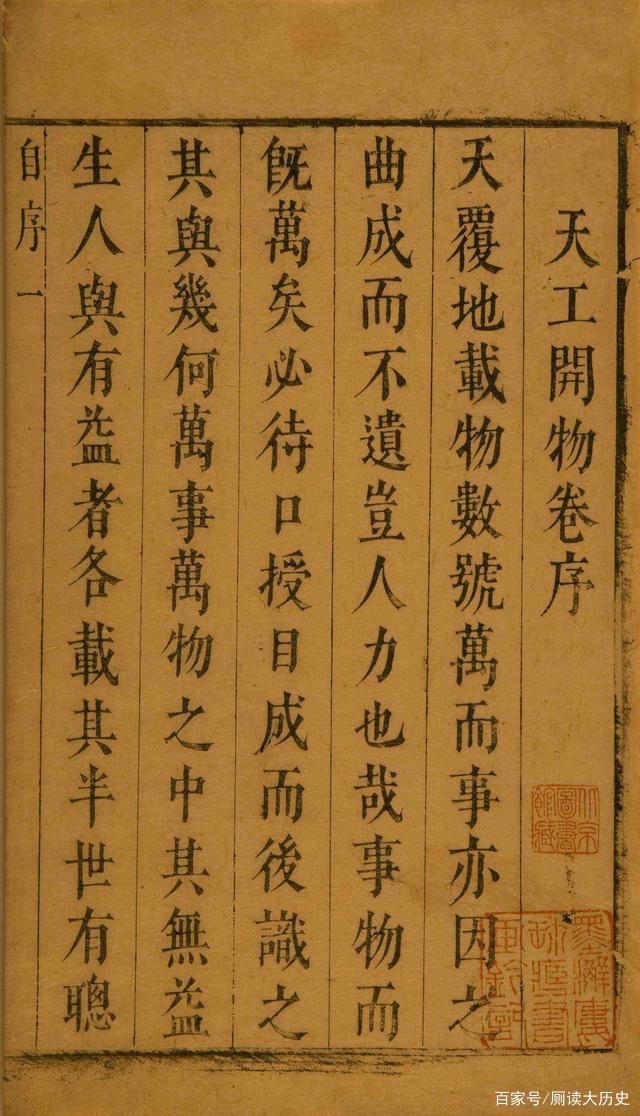 天工開物卷序
天覆地載物數號萬而事亦因之
曲成而不遺豈人力也哉事物而
旣萬矣必待口授目成而後識之
其與幾何萬事萬物之中其無益
生人與有益者各載其半世有聰
自序 一
北京圖書館藏
百家号/厕读大历史